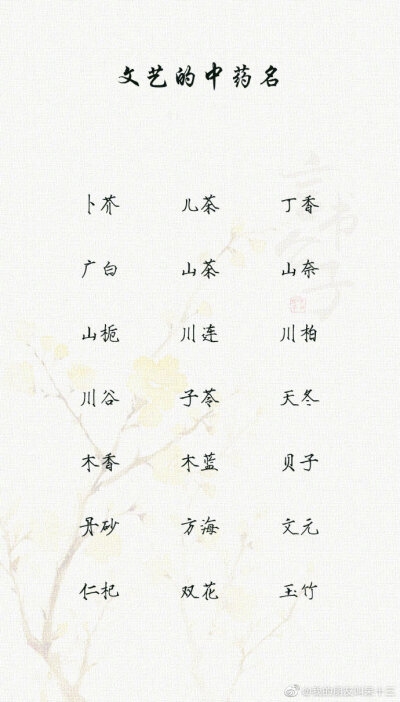 文艺的中药名
卜芥 儿茶 丁香
广白 山茶 山奈
山栀 川连 川柏
川谷 子苓 天冬
木香 木蓝 贝子
丹砂 方海 文元
仁杞 双花 玉竹